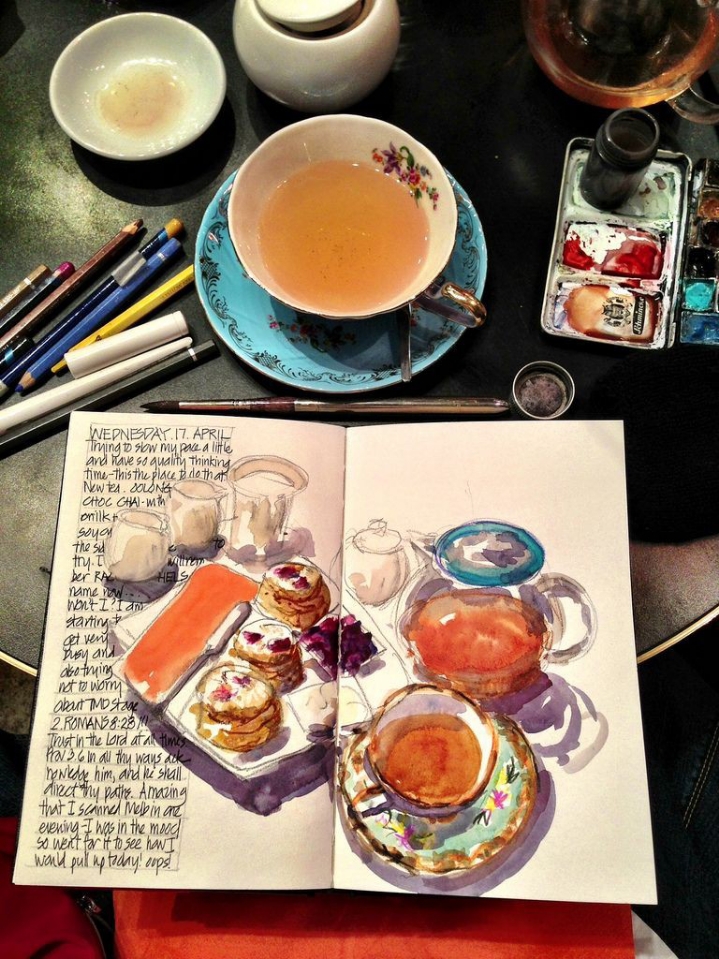 WEDNESDAY. 17. APRIL
Trying to slow my pace a little
and have so quality thinking
time-this the place to do that
New tea. OOLONG
CHOC CHAI-with
milk
soy
the to
try. I
ber RA HELS
name now..
won't I. I am
starting t
get very
busy and
also trying
not to worry
about TMD stage
2. ROMANS 8:28 !!!
Trust in the Lord at all times
Prov 3 6 In all thy ways ack-
nowledge him, and he shall
direct thy paths. Amazing
that I scanned Melb in one
evening-I was in the mood
so went for it to see how I
would pull up today! oops!